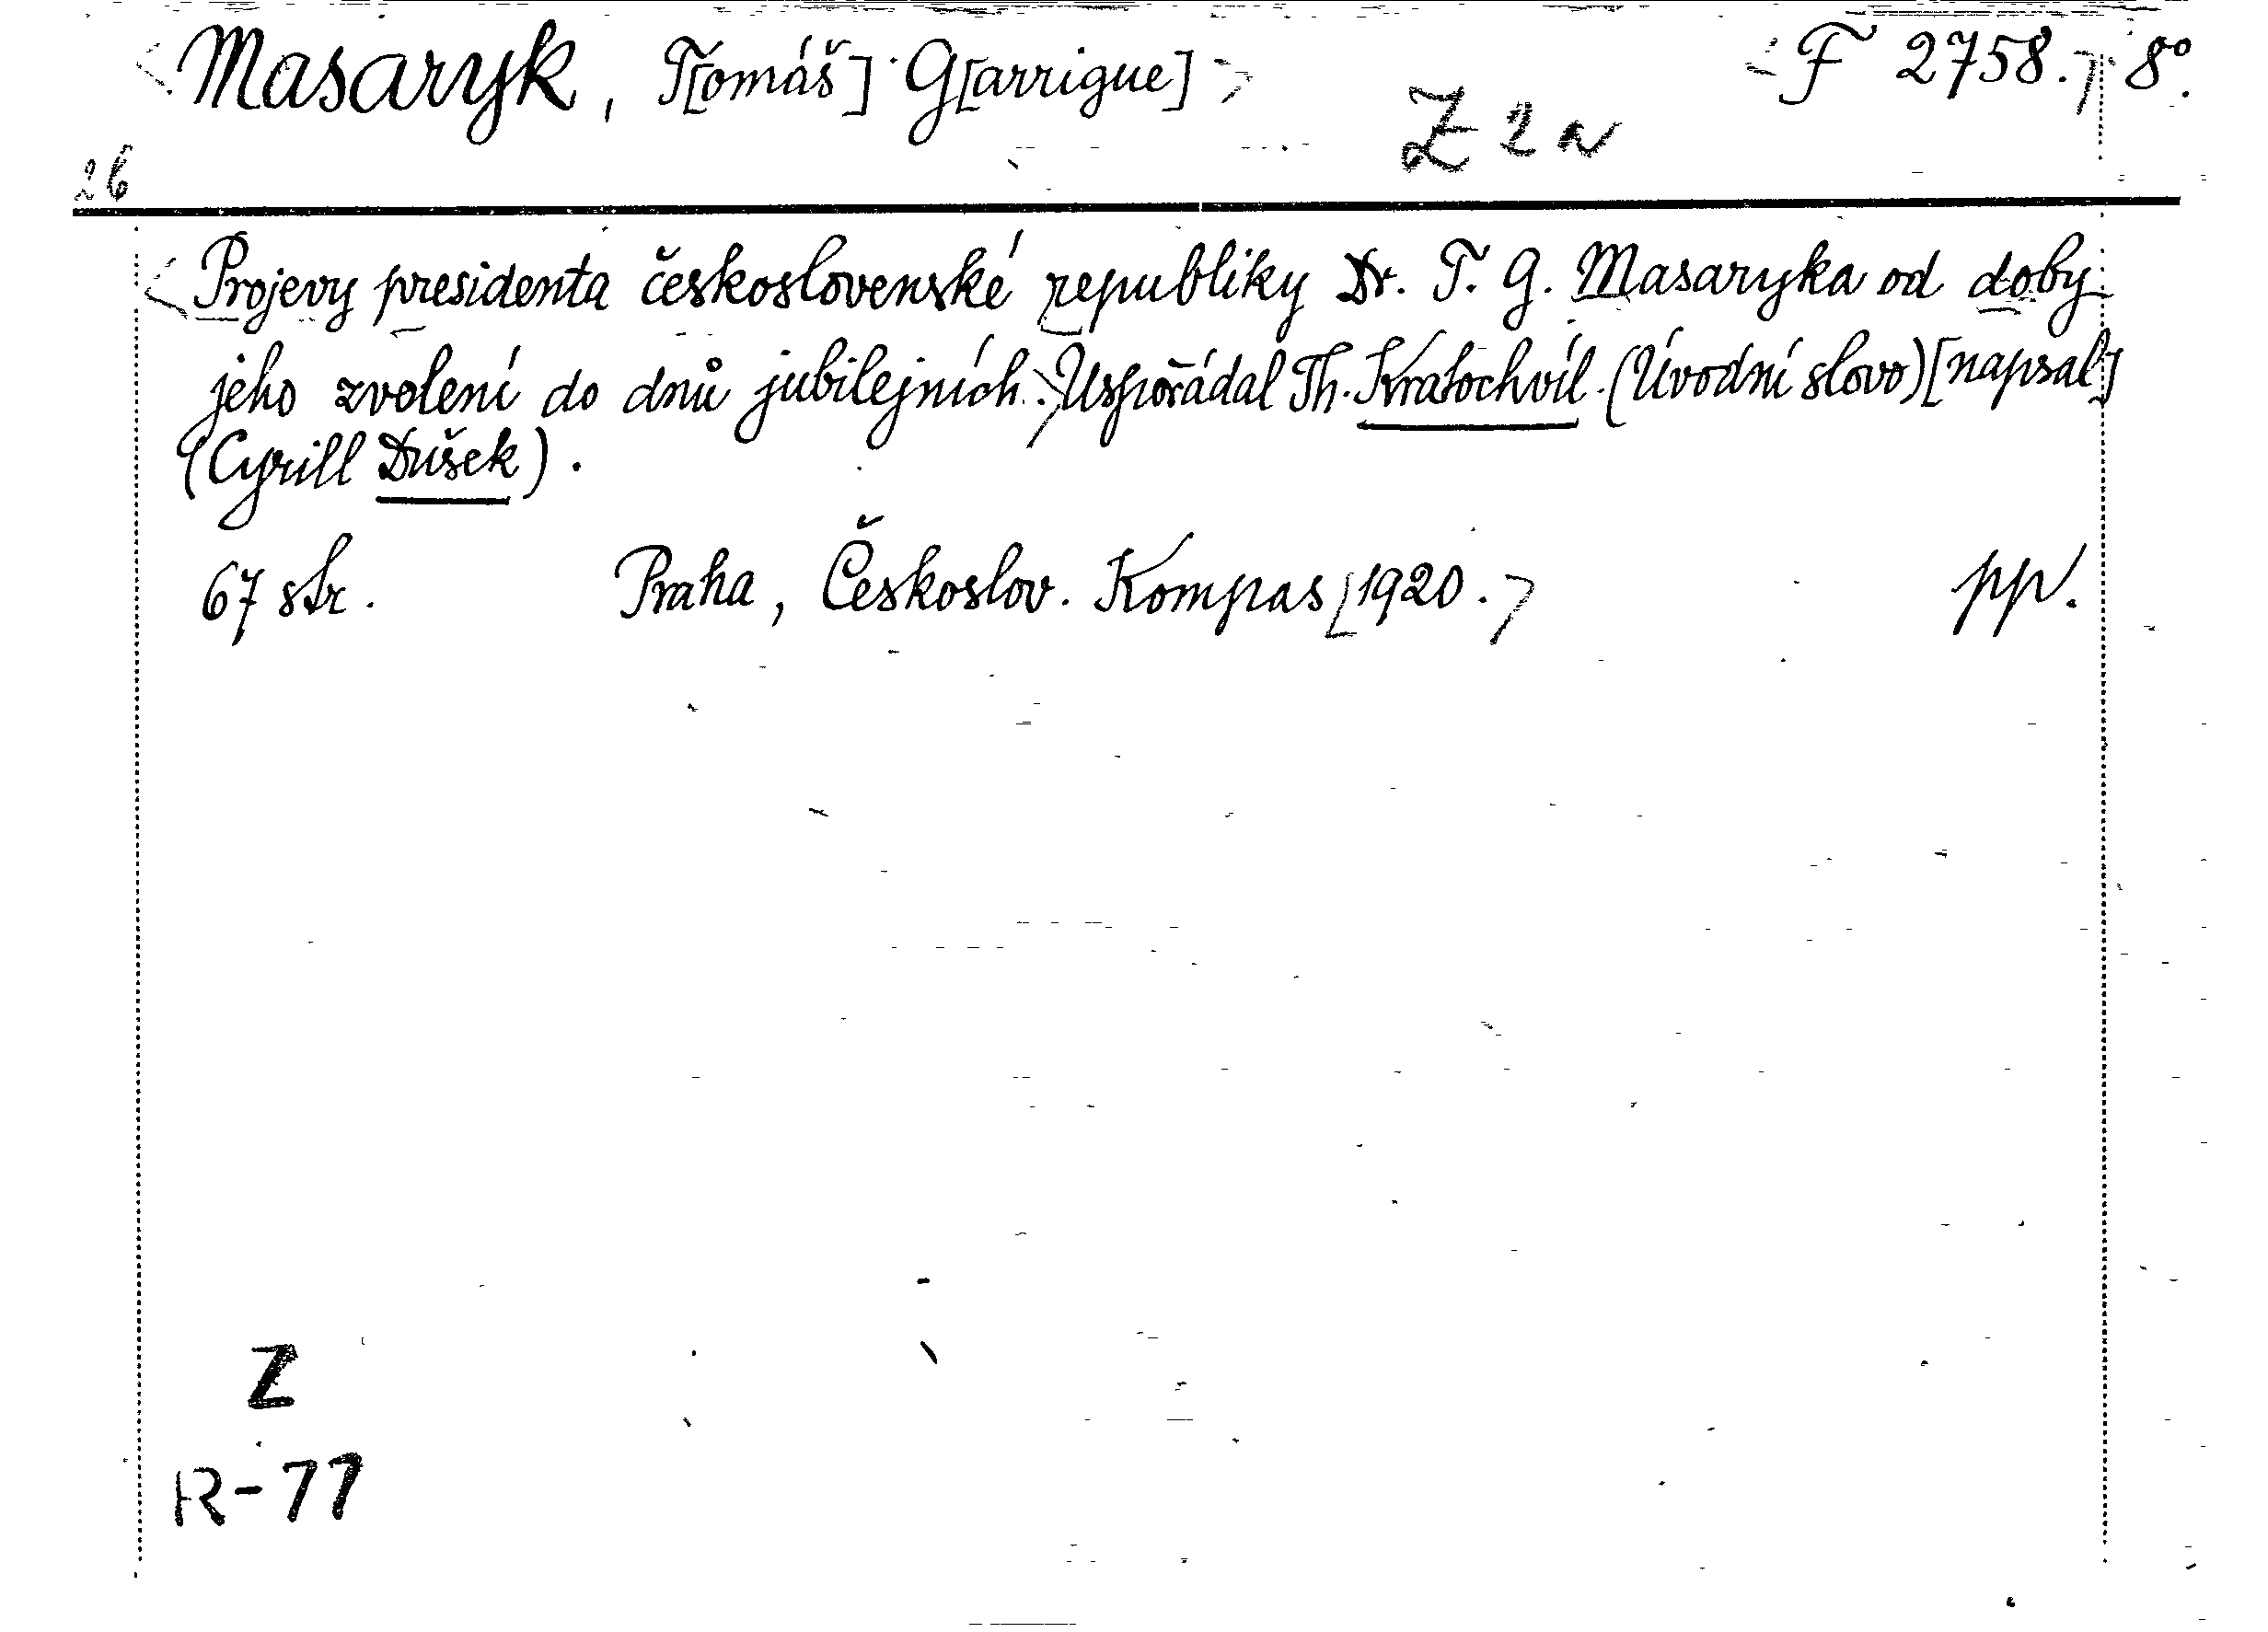 <Masaryk, T[omáš] G[arrigue]> <F 2758.> 8°.
Z 2 a
26
<Projevy presidenta československé republiky Dr. T. G. Masaryka od doby
jeho zvolení do dnů jubilejních.> Uspořádal Th. Kratochvíl. (Úvodní slovo) [napsal]
(Cyrill Dušek).
67 str. Praha, Českoslov. Kompas [1920.> pp.
Z
R-77